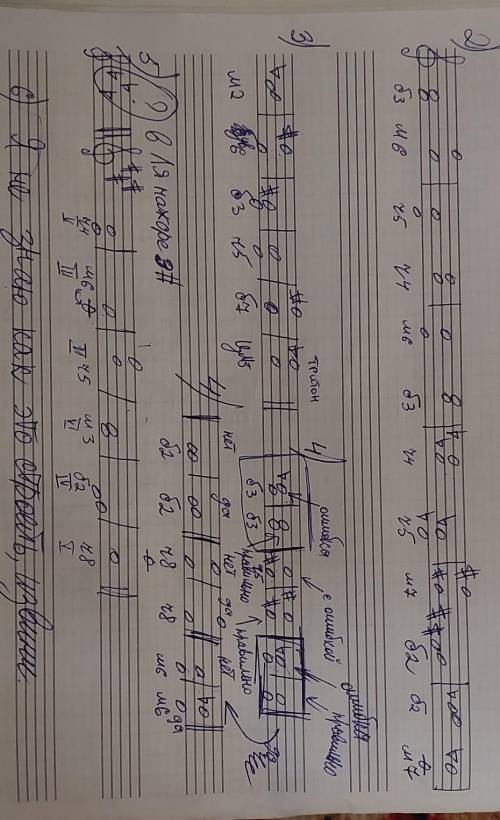 2)
б3 м6 ч5 ч4 м6 б3 ч4 ч5 м7 б2 б2 м7
3)
тритон
м2 б3 ч5 б7 ум5
4) ошибка с ошибкой ошибка правильно
б3 б3 правильно ч5 правильно
4) нет да нет да нет да
б2 б2 ч8 ч8 м6 м6
5) В Ля мажоре 3#
ч4 м6 ч5 м3 б2 ч8
V III VI VI IV V
6) Я не знаю как это строить, извини.